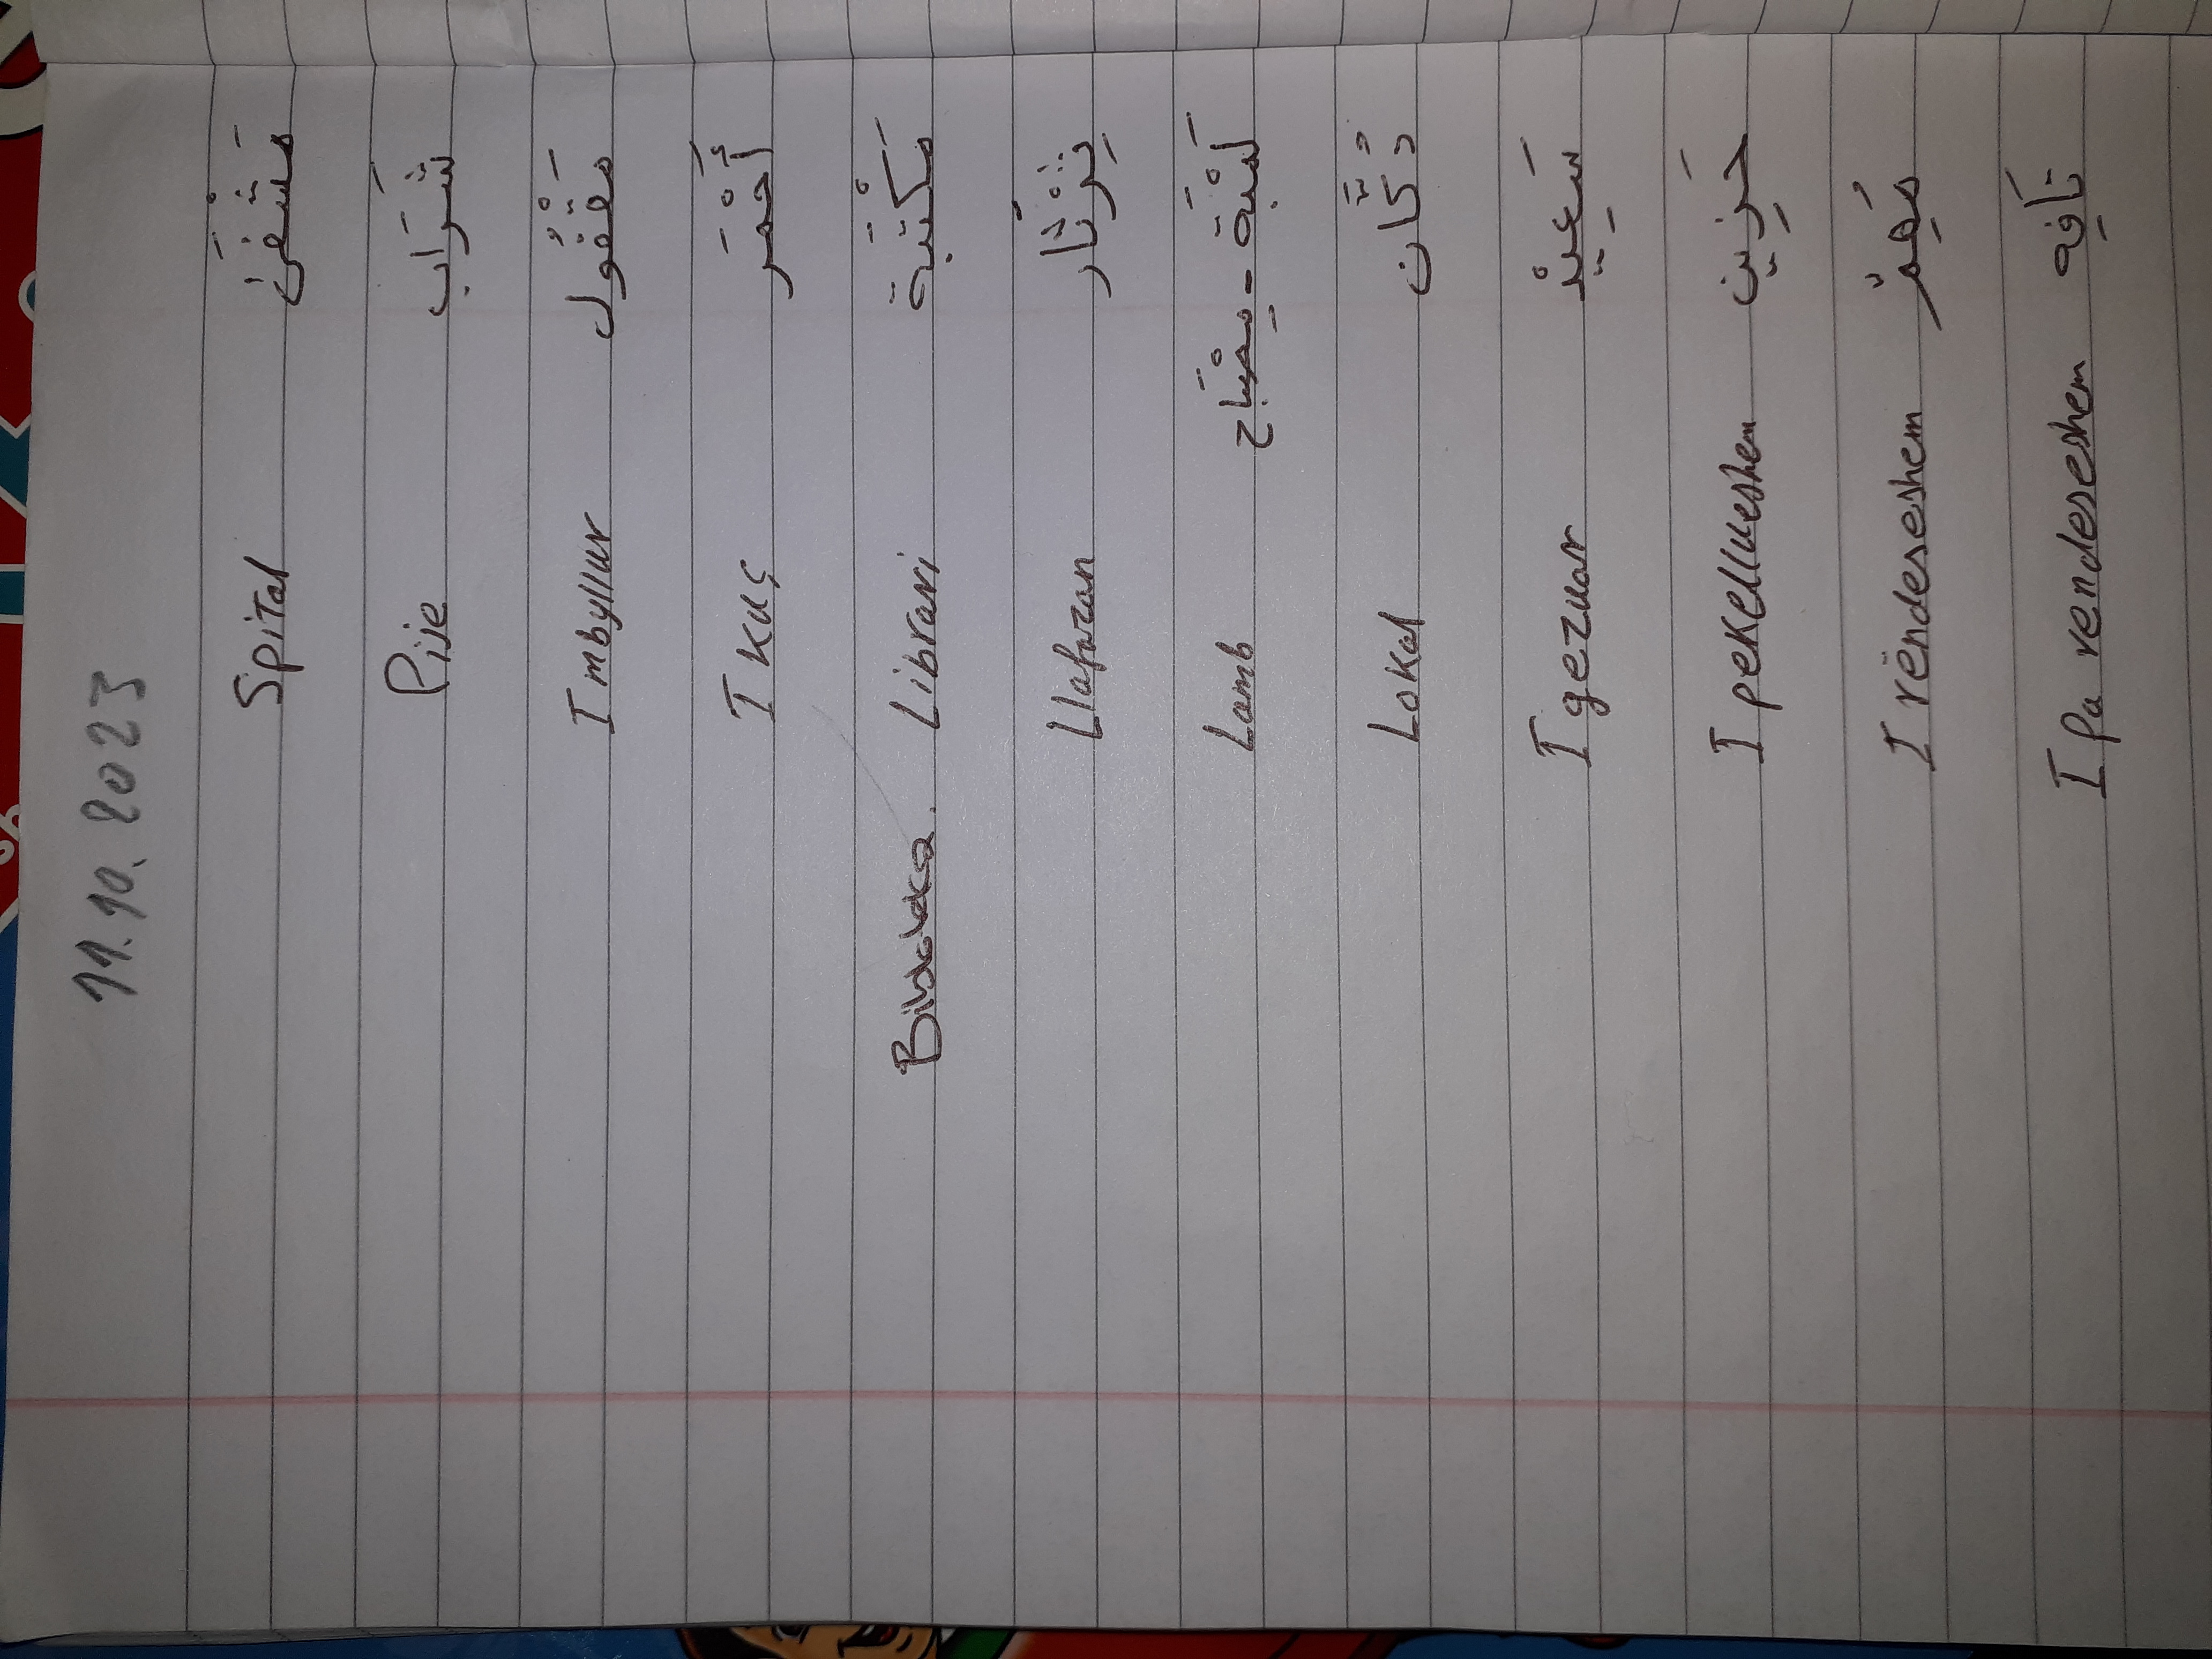 11.10.2023
Spital مَشْفَىٰ
Pije شَرَاب
I mbyllur مَقْفُول
I kuç أَحْمَر
Librari مَكْتَبَة
Llafazan ثِرْثَار
Lamb لَمْبَة - مِصْبَاح
Lokal دُكَّان
I gezuar سَعِيْد
I pekellueshem حَزِين
I rëndeseshem مُهِمْ
I Pa rendeseshem تَافِه